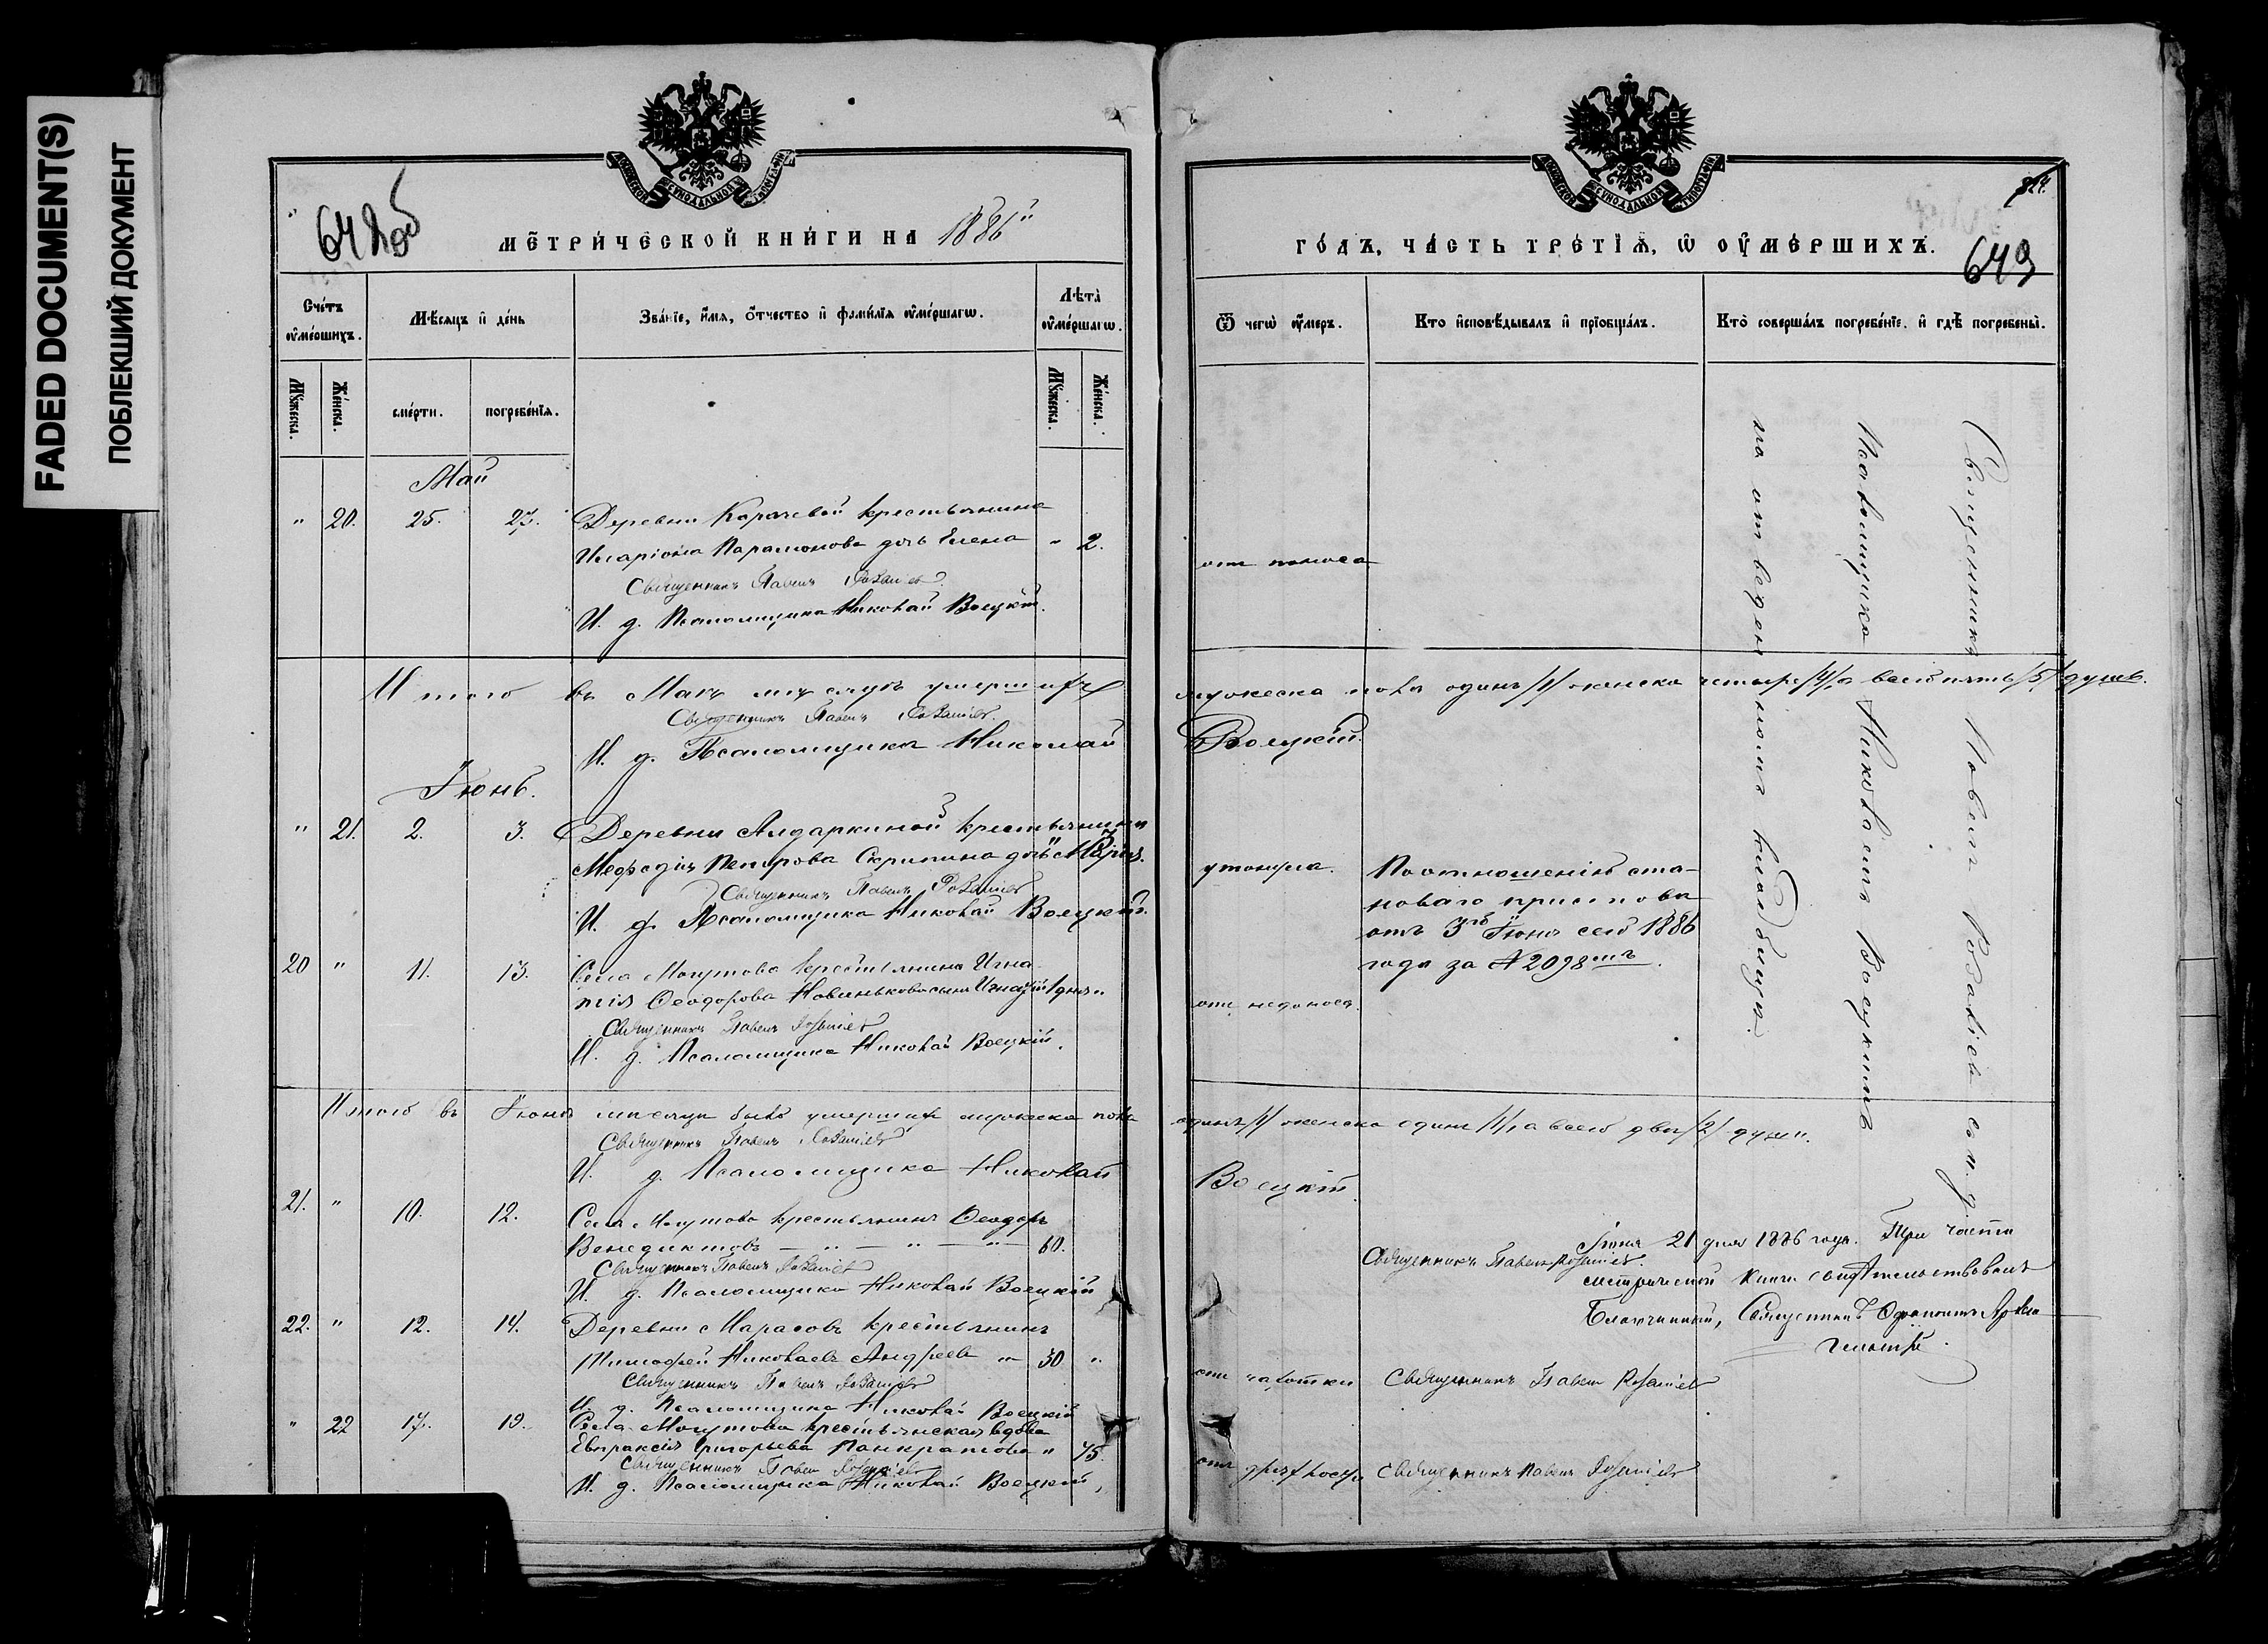 FADED DOCUMENT(S)
ПОБЛЕКШИЙ ДОКУМЕНТ
МОСКОВСКОЙ СѴНОДАЛЬНОЙ ТИПОГРАФІИ
642 об
МЕТРИЧЕСКОЙ КНИГИ НА 1886
Счетъ умершихъ.
Мѣсяцъ и день
Званіе, имя, отчество и фамилія умершаго.
Лѣта умершаго.
Мужеска.
Женска.
смерти.
погребенія.
Мужеска.
Женска.
Май
" 20. 25. 27. Деревни Карачевой крестьянина
Иларіона Парамонова дочь Елена " 2.
Священникъ Павелъ
И. д. Псаломщика Николай Воецкій.
Итого въ Маѣ мѣсяцѣ умершихъ
Священникъ Павелъ
И. д. Псаломщика Николай
Іюнь.
" 21. 2. 3. Деревни Алдаркиной крестьянина
Меѳодія Петрова Скрипина дочь Марія.
Священникъ Павелъ
И. д. Псаломщика Николай Воецкій.
20 " 11. 13. Села Могутова крестьянина Игна-
тія Ѳеодорова Новенькова сынъ Игнатій 1 дня "
Священникъ Павелъ
И. д. Псаломщика Николай Воецкій.
Итого въ Іюнѣ мѣсяцѣ было умершихъ мужеска пола
Священникъ Павелъ
И. д. Псаломщика Николай
21. " 10. 12. Села Могутова крестьянинъ Ѳеодоръ
Венедиктовъ — " — " — " — 60.
Священникъ Павелъ
И. д. Псаломщика Николай Воецкій
22. " 12. 14. Деревни Марасовъ крестьянинъ
Тимофей Николаевъ Андреевъ " 30 "
Священникъ Павелъ
И. д. Псаломщика Николай Воецкій
" 22 17. 19. Села Могутова крестьянская вдова
Евпраксія Григорьева Панкратова " 75.
Священникъ Павелъ
И. д. Псаломщика Николай Воецкій,
МОСКОВСКОЙ СѴНОДАЛЬНОЙ ТИПОГРАФІИ
649
ГОДЪ, ЧАСТЬ ТРЕТІЯ, Ѿ УМЕРШИХЪ.
Ѿ чего умеръ.
Кто исповѣдывалъ и пріобщалъ.
Кто совершалъ погребеніе. и гдѣ погребены.
от поноса
мужеска пола одинъ /1/ женска четыре /4/, а всего пять /5/ душъ.
Воецкій.
утонула.
По отношенію ста-
новаго пристава
отъ 3го Іюня сего 1886
года за № 2098мъ.
отъ недоноса.
одинъ /1/ женска один /1/, а всего два /2/ души.
Воецкій.
Священникъ Павелъ
Іюня 21 дня 1886 года. При части
метрической книги свидѣтельствовалъ
Благочинный, Священникъ
отъ чахотки Священникъ Павелъ
отъ дряхлости Священникъ Павелъ
Священникъ Павелъ со и. д.
Псаломщика Николаемъ Воецкимъ
на отведенномъ кладбищѣ.